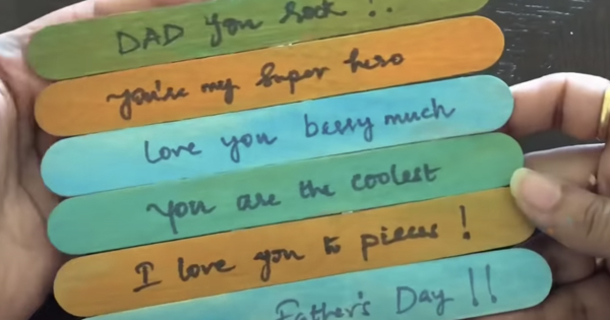 DAD you rock !!
you're my Super hero
love you berry much
You are the coolest
I love you to pieces !
Father's Day !!